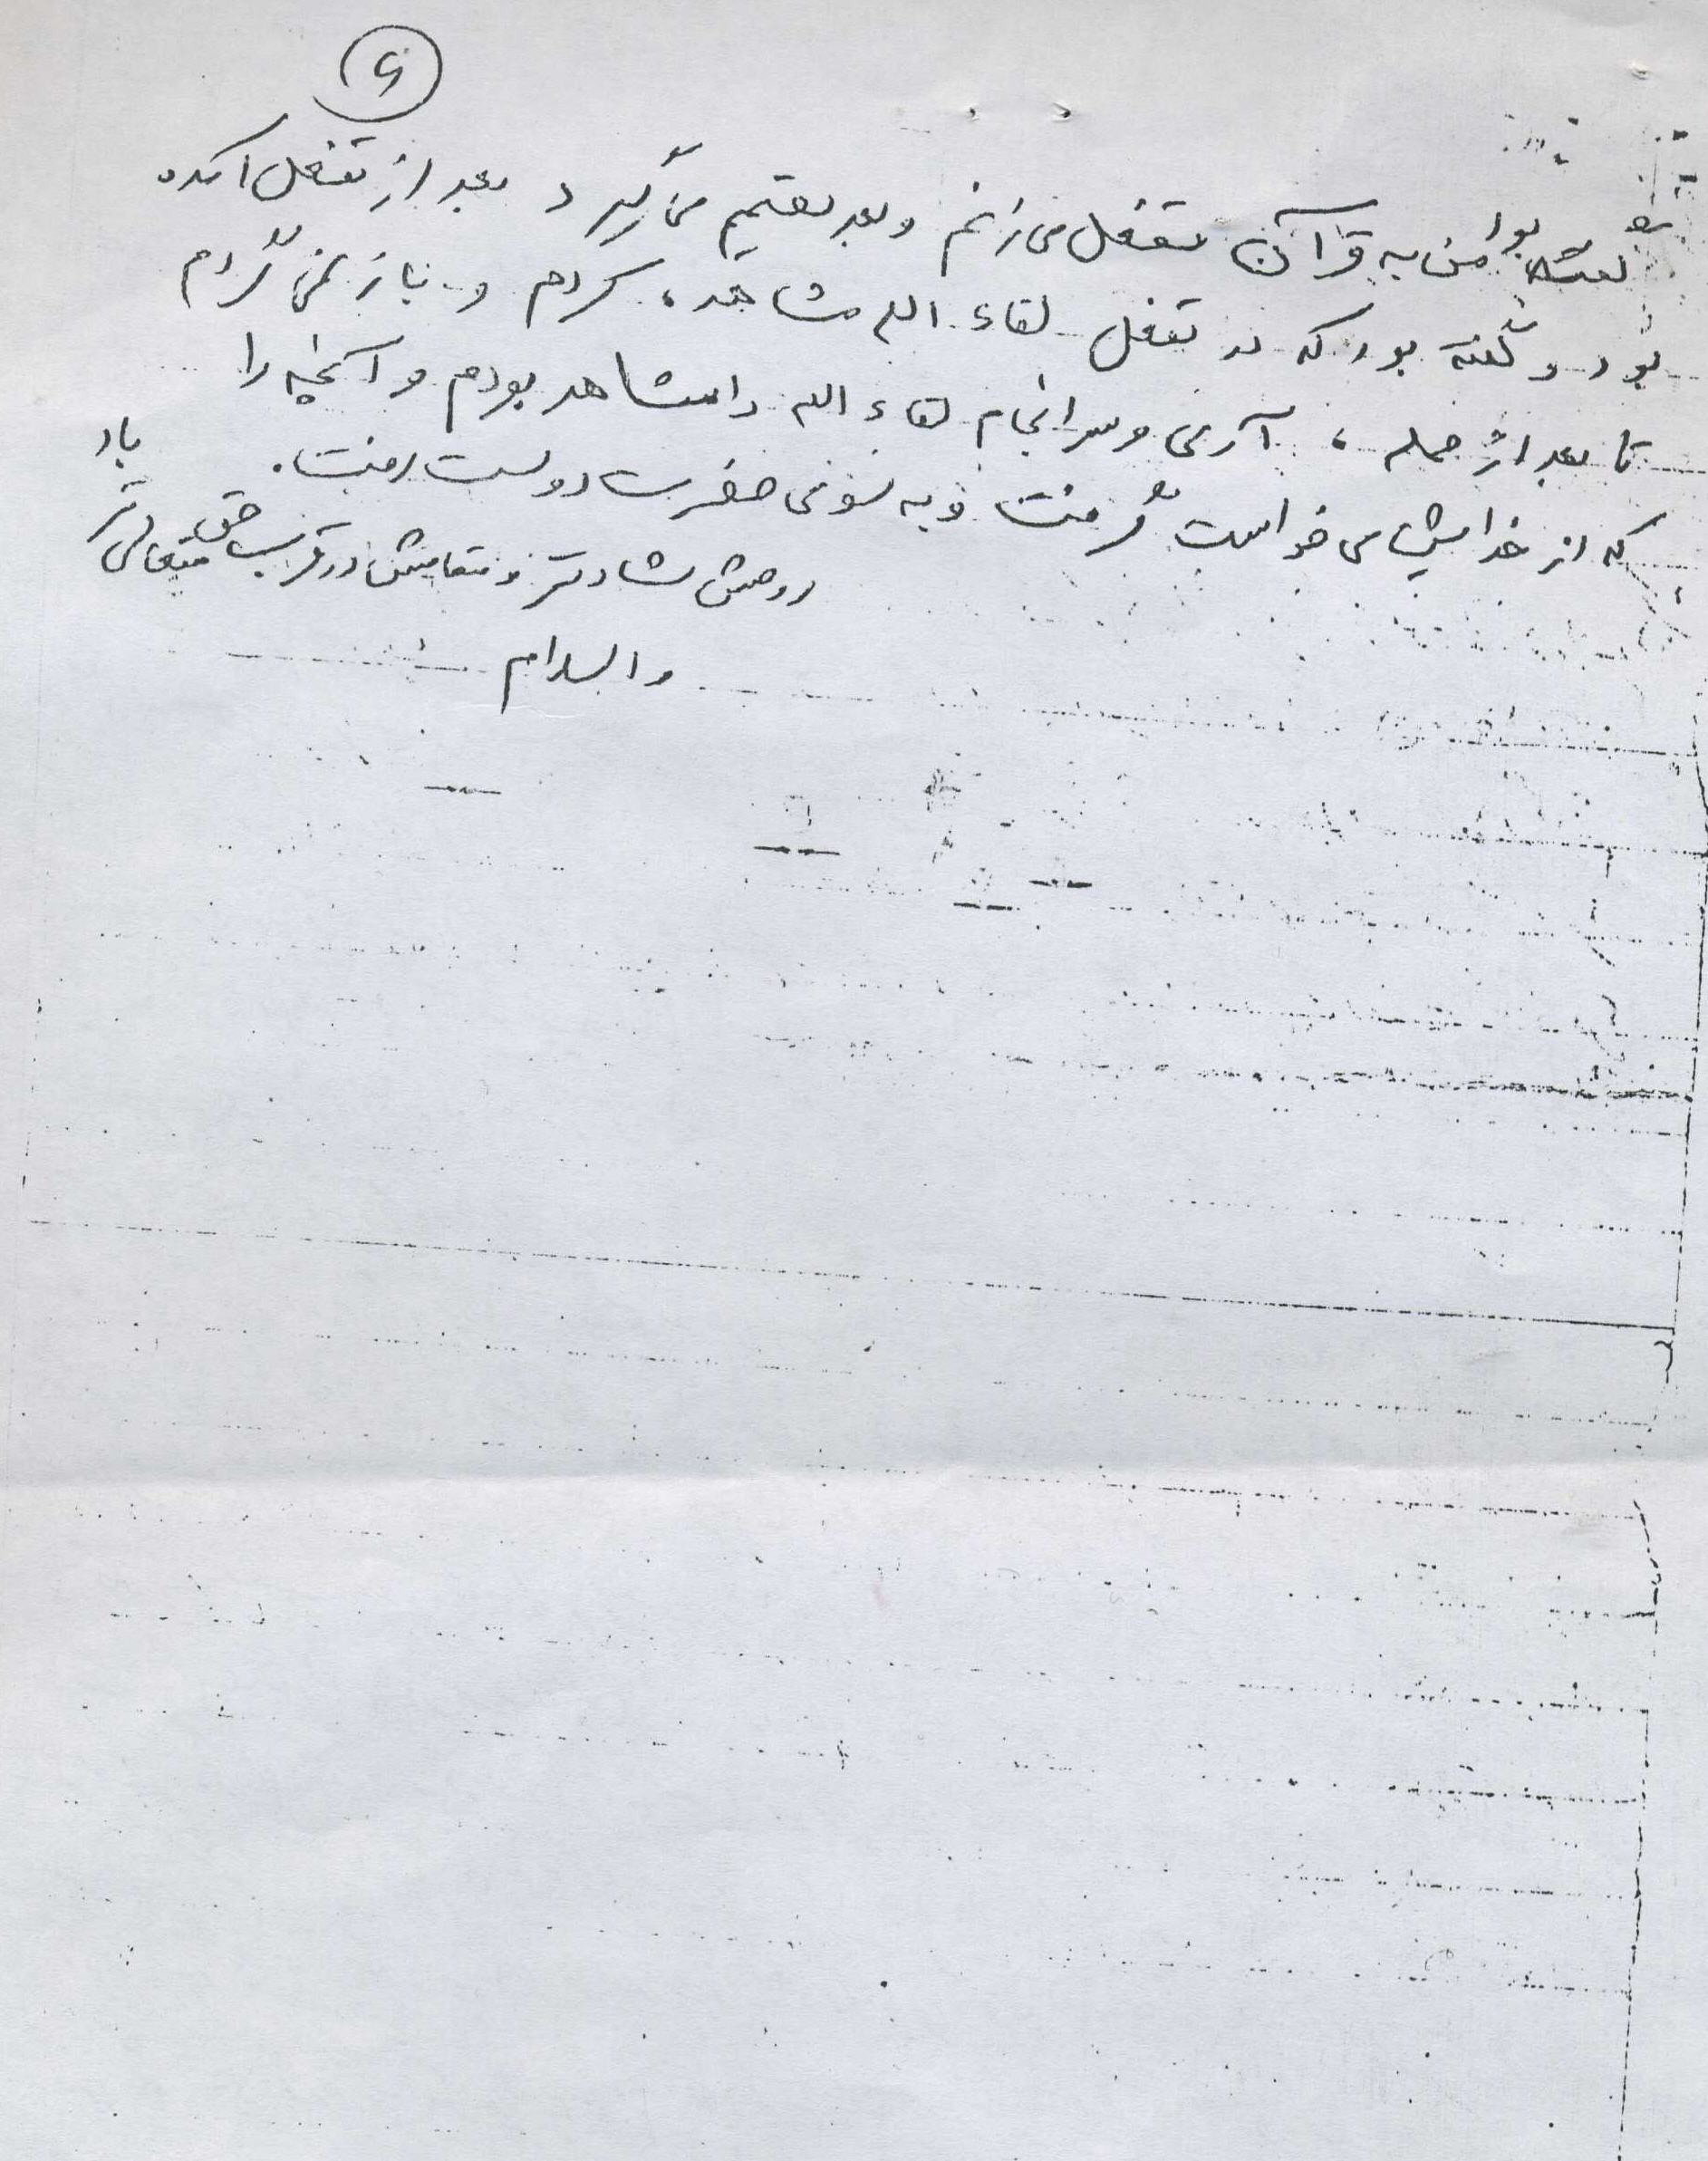 ۶
گفته بود من به قرآن تفعل می زنم و بعد تصمیم می گیرد بعد از تفعل آمده
بود و گفته بود که در تفعل لقاء الله مشاهده کردم و باز نمی گردم
تا بعد از حمله ، آری و سرانجام لقاء الله را مشاهد بودم و آنچه را
که از خدایش می خواست گرفت و به سوی حضرت دوست رفت .
روحش شادتر و مقامش در قرب حق متعالی تر باد
والسلام